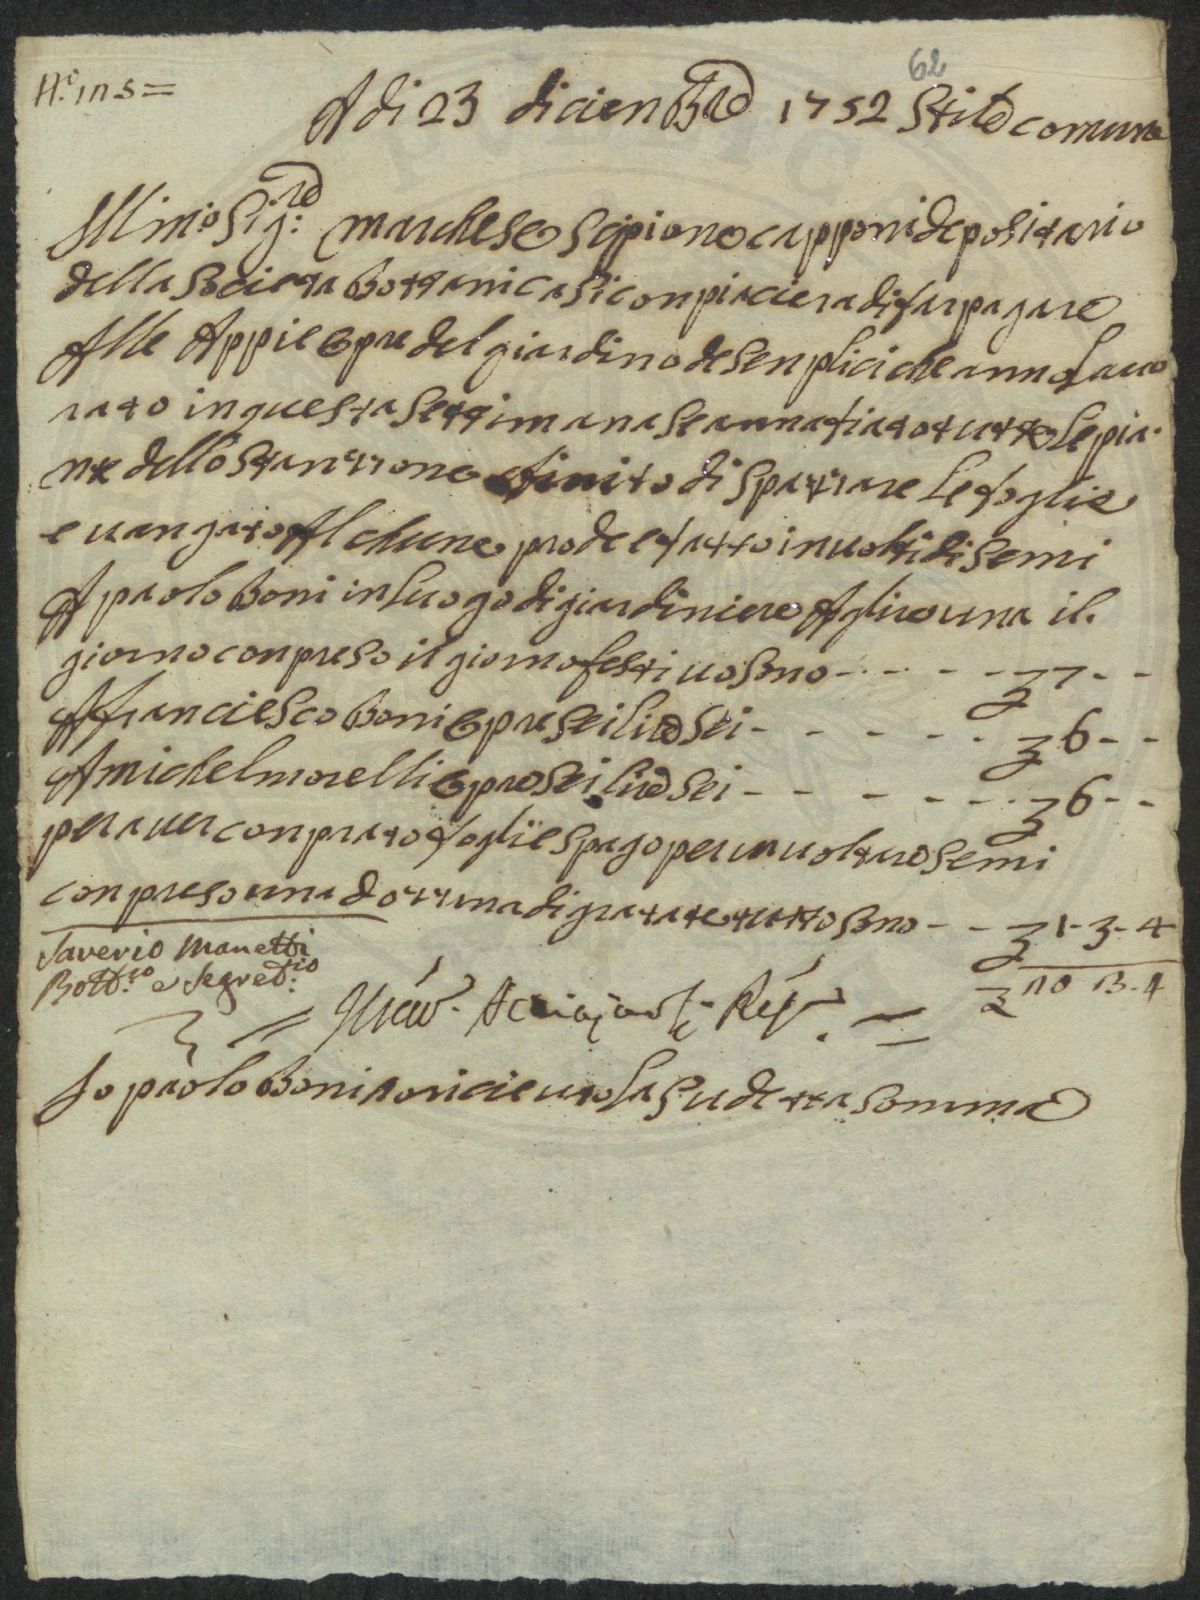 62
N.º 105=
A di 23 diciembre 1752 Stile comune
Ill.mo Sig.re marchese Scipione capponi depositario
della Societa Bottanica si conpiaciera di far pagare
Alle Appie Opre del giardino de senplici che anno lavo
rato in questa settimana se annafiato tutte le pia
nte dello stanzzone e finito di spazzare le foglie
e vangato Alchune prode e fatto involti di semi
A paolo Boni in luogo di giardiniere A lire una il
giorno conpreso il giorno festivo sono - - - - £ 7 - -
A franciesco Boni Opre sei lire sei - - - - - £ 6 - -
A michel morelli Opre sei lire sei - - - - - £ 6 - -
per aver conprato fogli e spago per involtare semi
conpreso una dozzina di granate tutto sono - - £ 1 - 3 - 4
Saverio Manetti
Bott.co e Segret.rio
£ 20 13.4
Io paolo Boni o ricieuto la sudetta somma